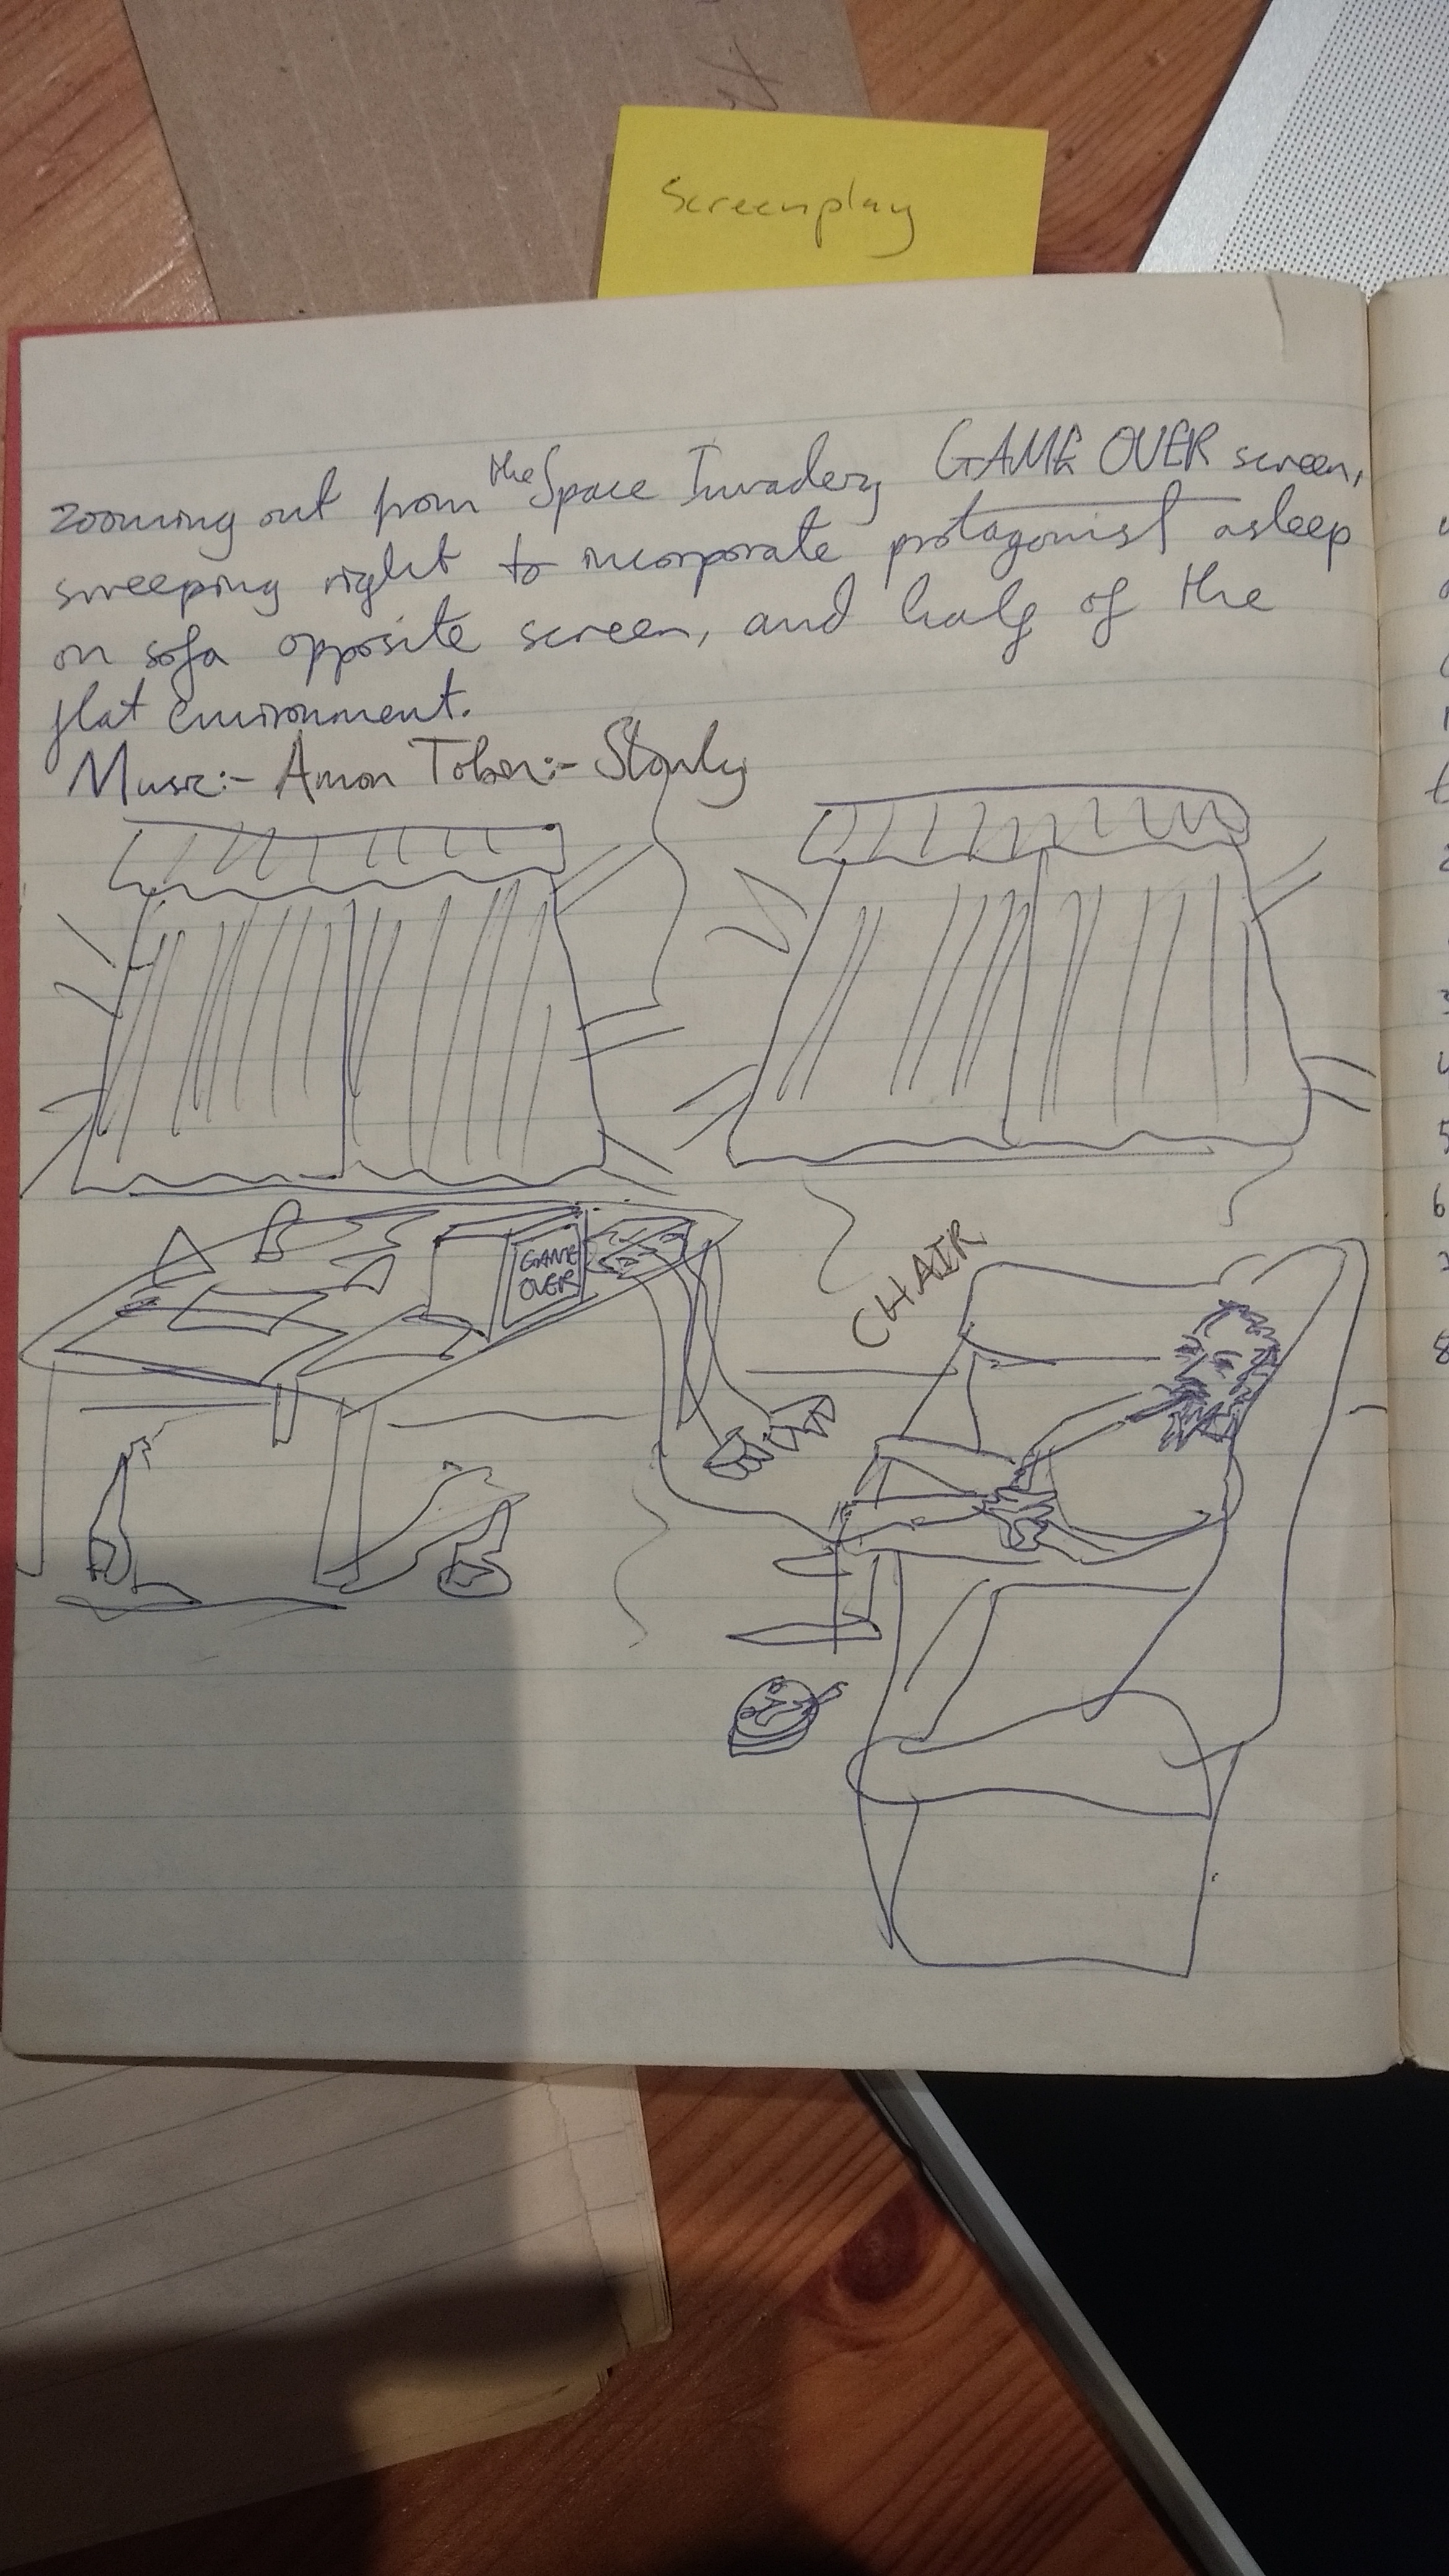 Screenplay
zooming out from the Space Invaders GAME OVER screen,
sweeping right to incorporate protagonist asleep
on sofa opposite screen, and half of the
flat environment.
Music:- Amon Tobin:- Slowly
GAME
OVER
CHAIR